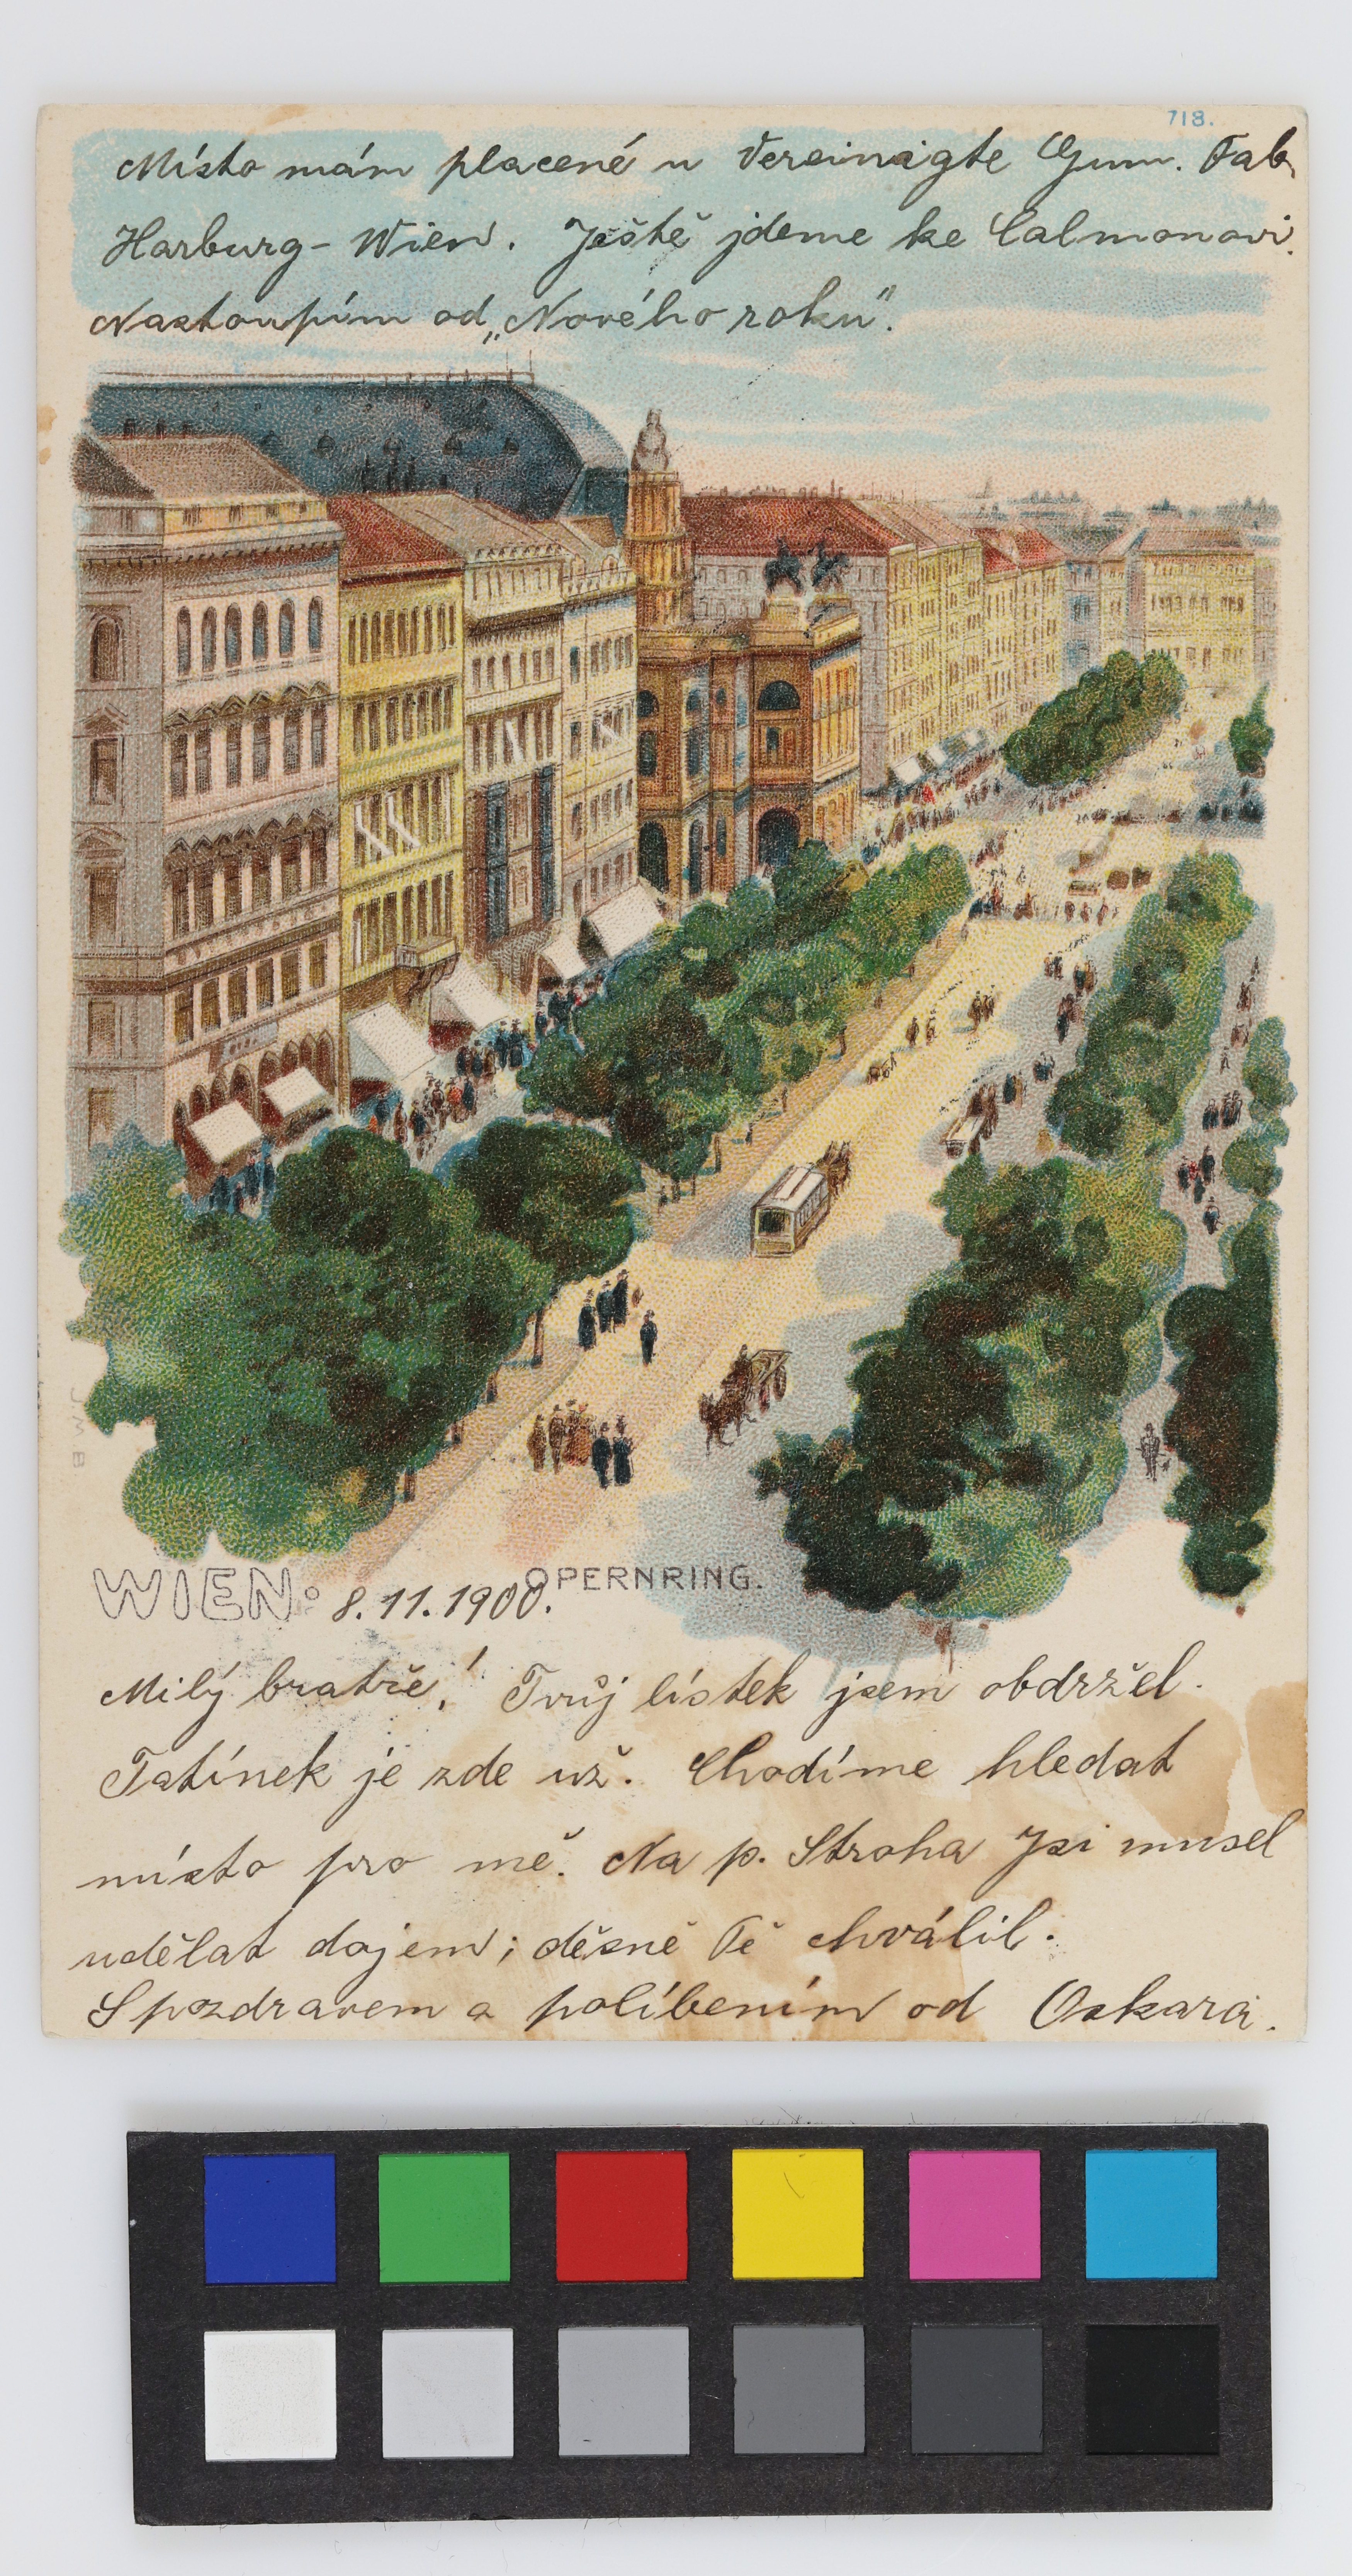 718.
Místo mám placené u Vereinigte Gum. Fab.
Harburg - Wien. Ještě jdeme ke Calmonovi.
Nastoupím od „Nového roku".
WIEN: 8.11.1900. OPERNRING.
Milý bratře! Tvůj lístek jsem obdržel.
Tatínek je zde už. Chodíme hledat
místo pro mě. Na p. Stroha Jsi musel
udělat dojem; děsně Tě chválil.
S pozdravem a políbením od Oskara.